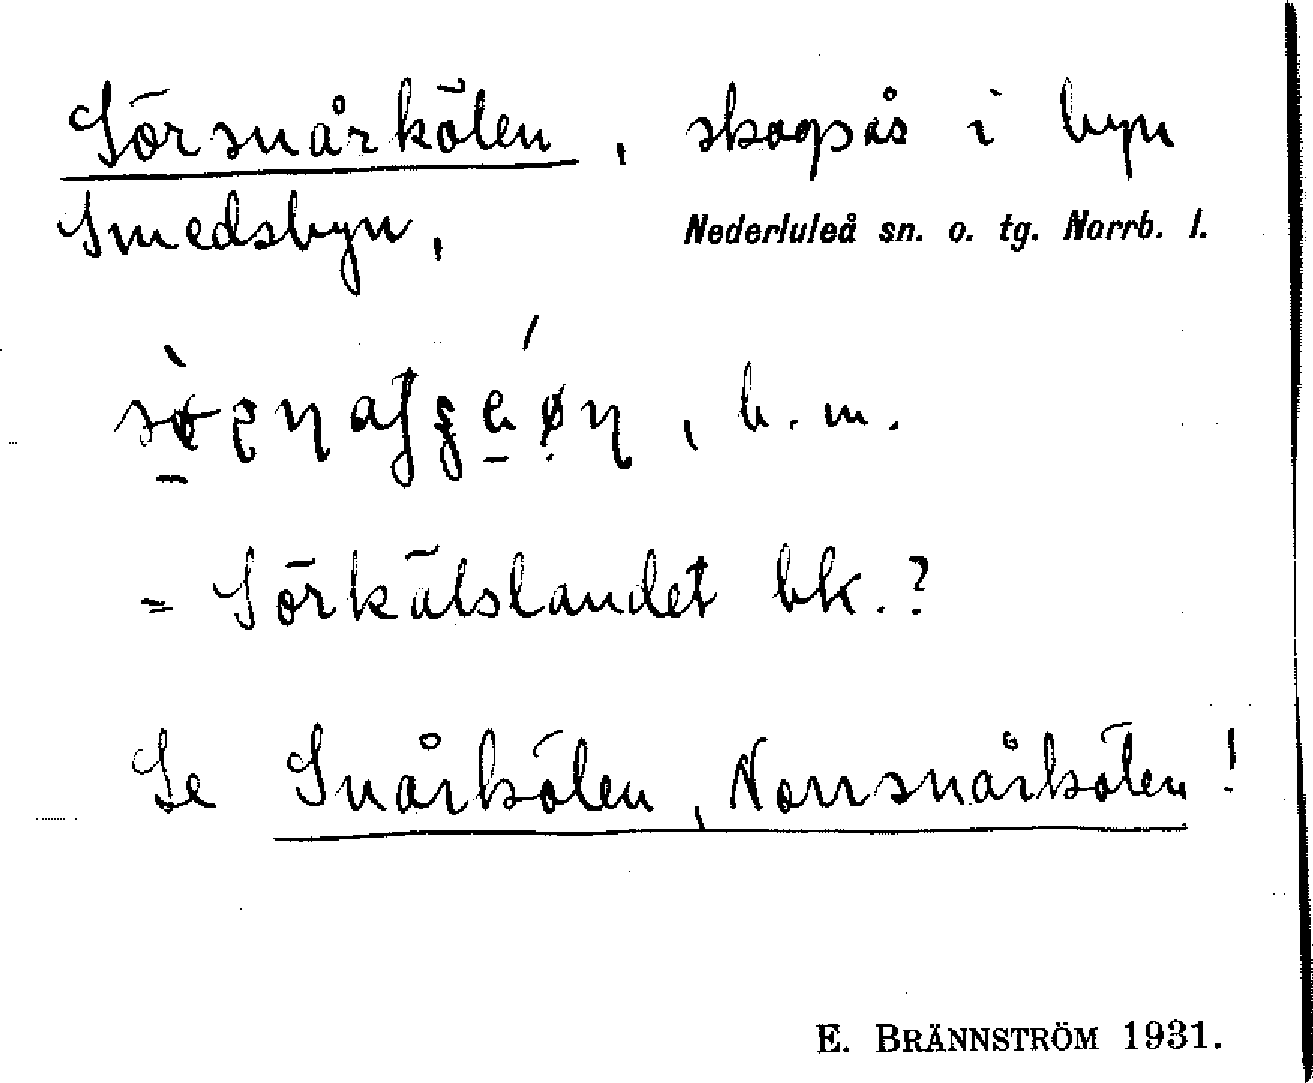 Sörsnårkölen, skogsås i byn
Smedsbyn, Nederluleå sn. o. tg. Norrb. l.
, b. m.
= Sörkälslandet bk.?
Se Snårkölen, Norrsnårkölen!
E. BRÄNNSTRÖM 1931.